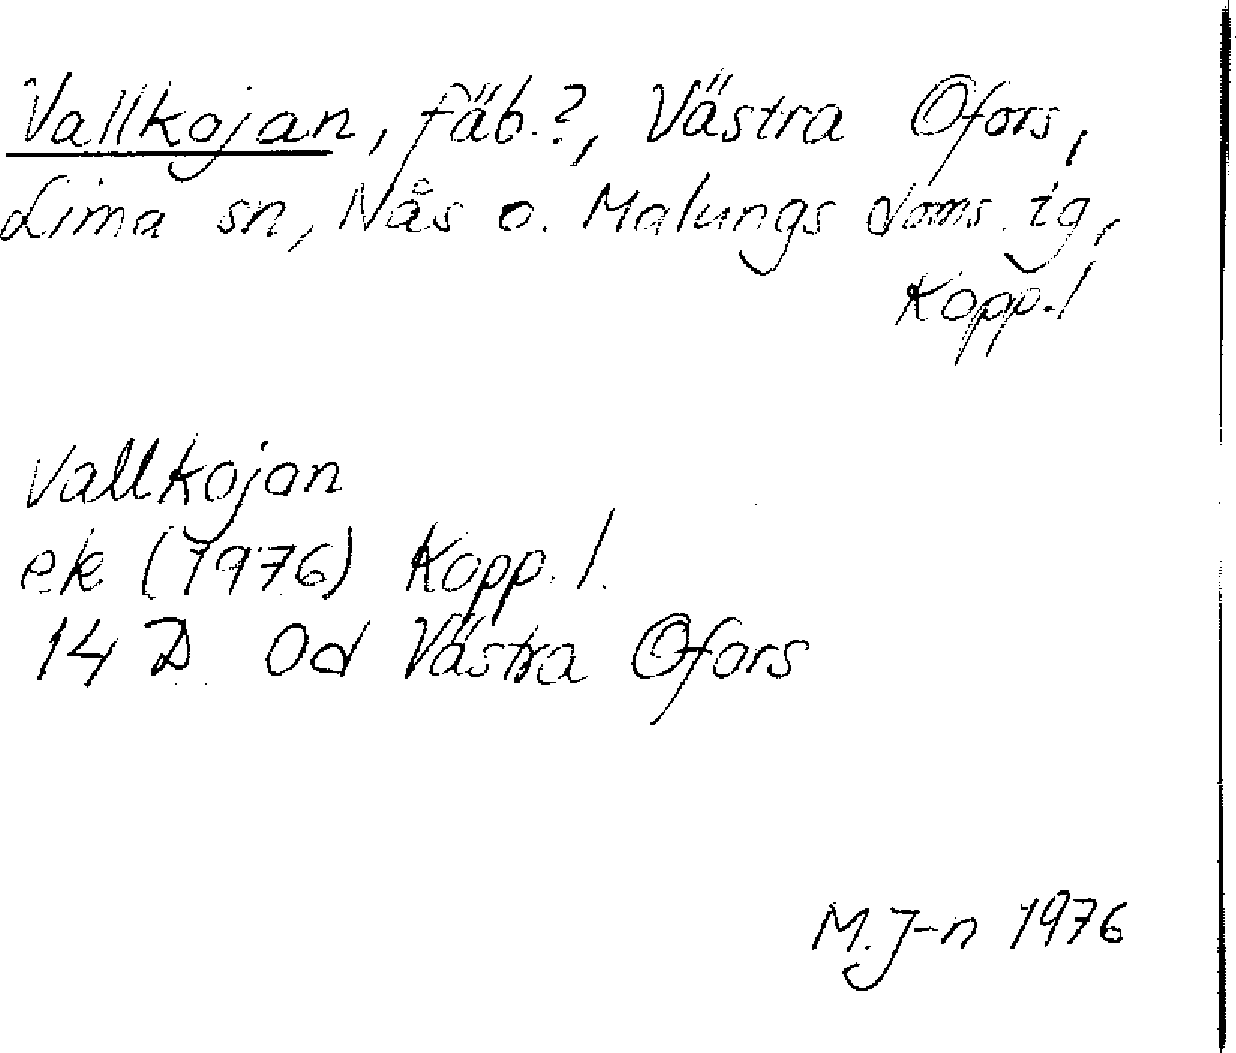 Vallkojan, fäb.?, Västra Ofors,
Lima sn, Nås o. Malungs doms. tg,
Kopp.l
Vallkojan
ek (1976) Kopp. l.
14 D Od Västra Ofors
M. J-n 1976